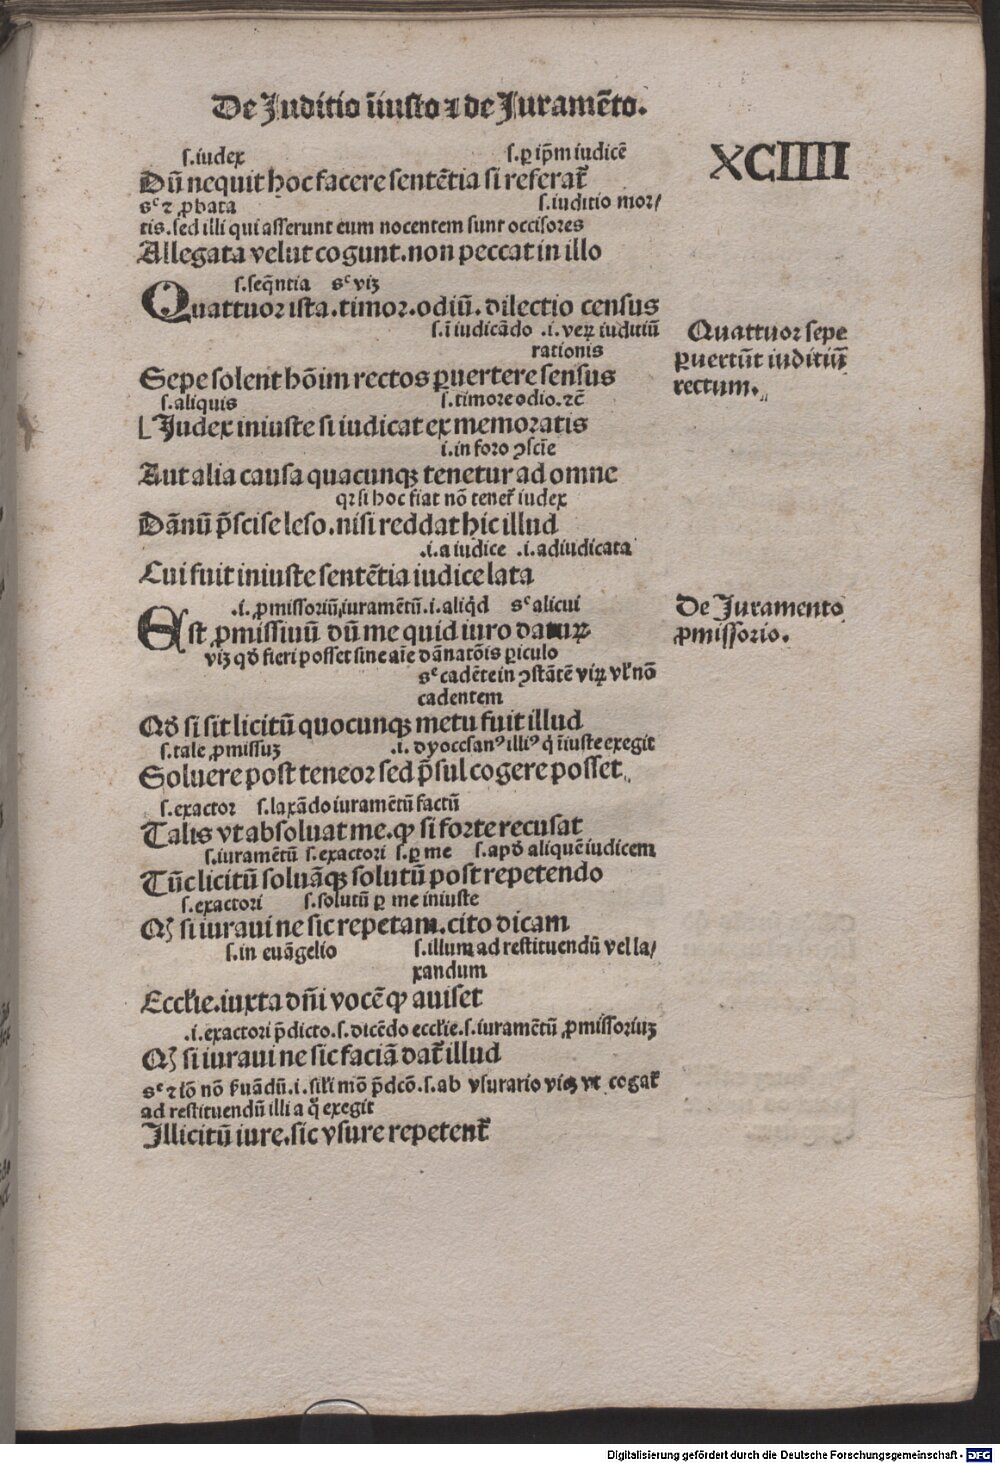 De Juditio īiusto ⁊ de Juramēto.
XCIIII
s.iudex s.ꝑ ip̄m iudicē
Dū nequit hoc facere sentētia si referat᷑
sᶜ ⁊ ꝓbata s.iuditio mor/
tis.sed illi qui asserunt eum nocentem sunt occisores
Allegata velut cogunt.non peccat in illo
s.seq̄ntia sᶜ viꝫ
Quattuor ista.timor.odiū.dilectio census
s.ī iudicādo .i.veꝝ iuditiū
rationis
Quattuor sepe
ꝑuertūt iuditiū
rectum.
Sepe solent hōim rectos ꝑuertere sensus
s.aliquis s.timore odio.⁊c̄
Judex iniuste si iudicat ex memoratis
i.in foro ꝯscīe
Aut alia causa quacunqꝫ tenetur ad omne
qꝛ si hoc fiat nō tenet᷑ iudex
Dānū p̄scise leso.nisi reddat hic illud
.i.a iudice .i.adiudicata
Cui fuit iniuste sentētia iudice lata
.i.ꝓmissoriū iuramētū.i.aliqd̄ sᶜ alicui
De Juramento
ꝓmissorio.
Est ꝓmissiuū dū me quid iuro daturꝝ
viꝫ qd̄ fieri posset sine aīe dānatōis ꝑiculo
sᶜ cadēte in ꝯstātē viꝝ vl̓ nō
cadentem
Qd̄ si sit licitū quocunqꝫ metu fuit illud
s.tale ꝓmissuꝫ .i. dyocesanꝰ illiꝰ q̄ īiuste exegit
Soluere post teneor sed p̄sul cogere posset.
s.exactor s.laxādo iuramētū factū
Talis vt absoluat me.qꝙ si forte recusat
s.iuramētū s.exactori s.ꝑ me s.apd̄ aliquē iudicem
Tūc licitū soluāqꝫ solutū post repetendo
s.exactori s.solutū ꝑ me iniuste
Qꝫ si iuraui ne sic repetam.cito dicam
s.in euāgelio s.illum ad restituendū vel la/
xandum
Eccl̓ie.iuxta dn̄i vocē qꝙ auiset
.i.exactori p̄dicto.s.dicēdo eccl̓ie.s.iuramētū ꝓmissoriuꝫ
Qꝫ si iuraui ne sic faciā dat᷑ illud
sᶜ ⁊ iō nō ẜuādū.i.sil̓i mō p̄dcō.s.ab vsurario viꝫ vt cogat᷑
ad restituendū illi a q̊ exegit
Illicitū iure.sic vsure repetent᷑
Digitalisierung gefördert durch die Deutsche Forschungsgemeinschaft - DFG